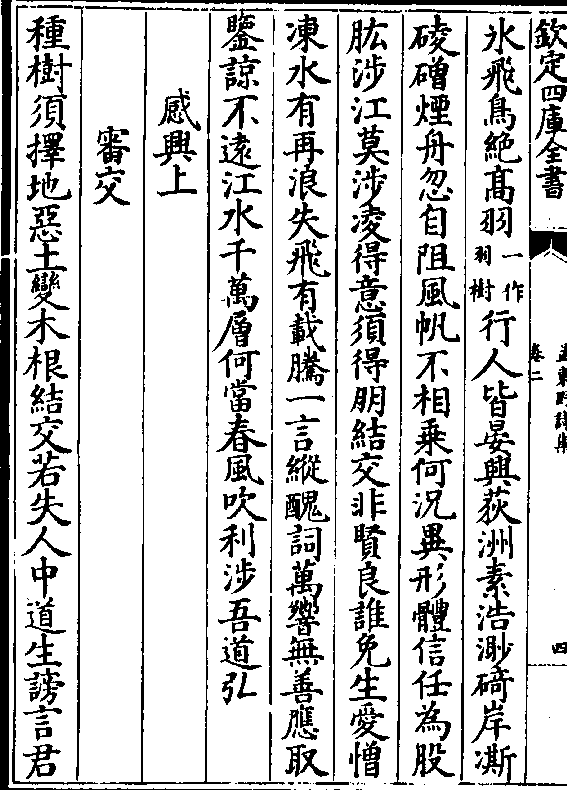 欽定四庫全書
卷二
孟東野詩集
四
氷飛鳥絶髙羽一作羽樹行人皆晏興荻洲素浩渺碕岸澌
碐磳煙舟忽自阻風帆不相乗何況異形體信任為股
肱涉江莫涉凌得意須得朋結交非賢良誰免生愛憎
凍水有再浪失飛有載騰一言縱醜詞萬響無善應取
鑒諒不逺江水千萬層何當春風吹利涉吾道弘
感興上
審交
種樹須擇地惡土變木根結交若失人中道生謗言君